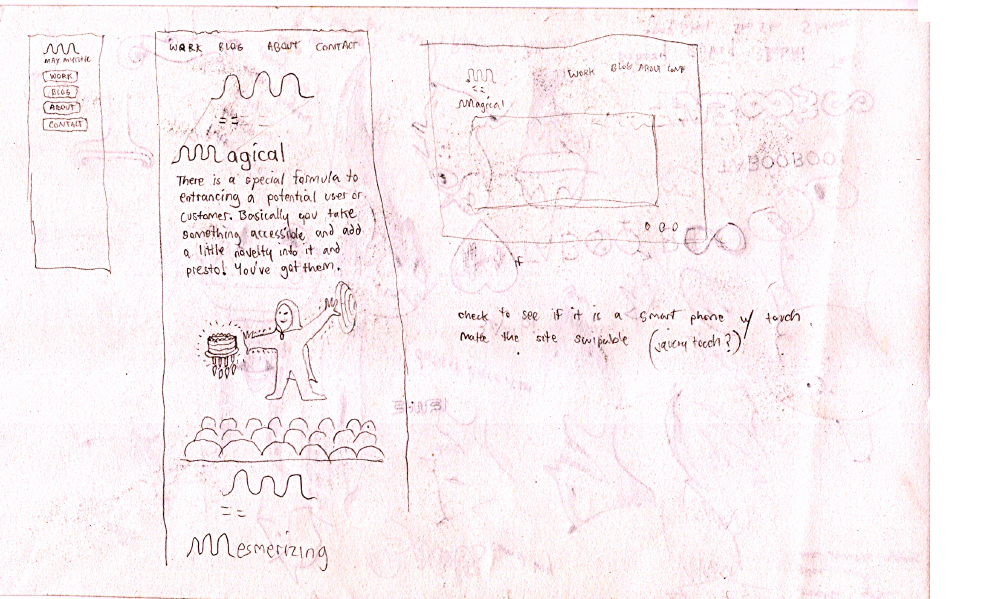 WORK
BLOG
ABOUT
CONTACT
WORK BLOG ABOUT CONTACT
Magical
There is a special formula to
entrancing a potential user or
customer. Basically you take
something accessible and add
a little novelty into it and
presto! You've got them.
Mesmerizing
WORK BLOG ABOUT CONT
Magical
check to see if it is a smart phone w/ touch
make the site swipable (jquery touch?)